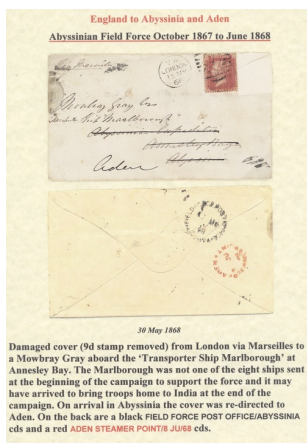 England to Abyssinia and Aden
Abyssinian Field Force October 1867 to June 1868
via Marseilles
LONDON
Mowbray Gray Esq
Ship Marlborough
Abyssinian Expedition
Annesley Bay
Abyssinia
Aden
30 May 1868
Damaged cover (9d stamp removed) from London via Marseilles to
a Mowbray Gray aboard the ‘Transporter Ship Marlborough’ at
Annesley Bay. The Marlborough was not one of the eight ships sent
at the beginning of the campaign to support the force and it may
have arrived to bring troops home to India at the end of the
campaign. On arrival in Abyssinia the cover was re-directed to
Aden. On the back are a black FIELD FORCE POST OFFICE/ABYSSINIA
cds and a red ADEN STEAMER POINT/8 JU/68 cds.